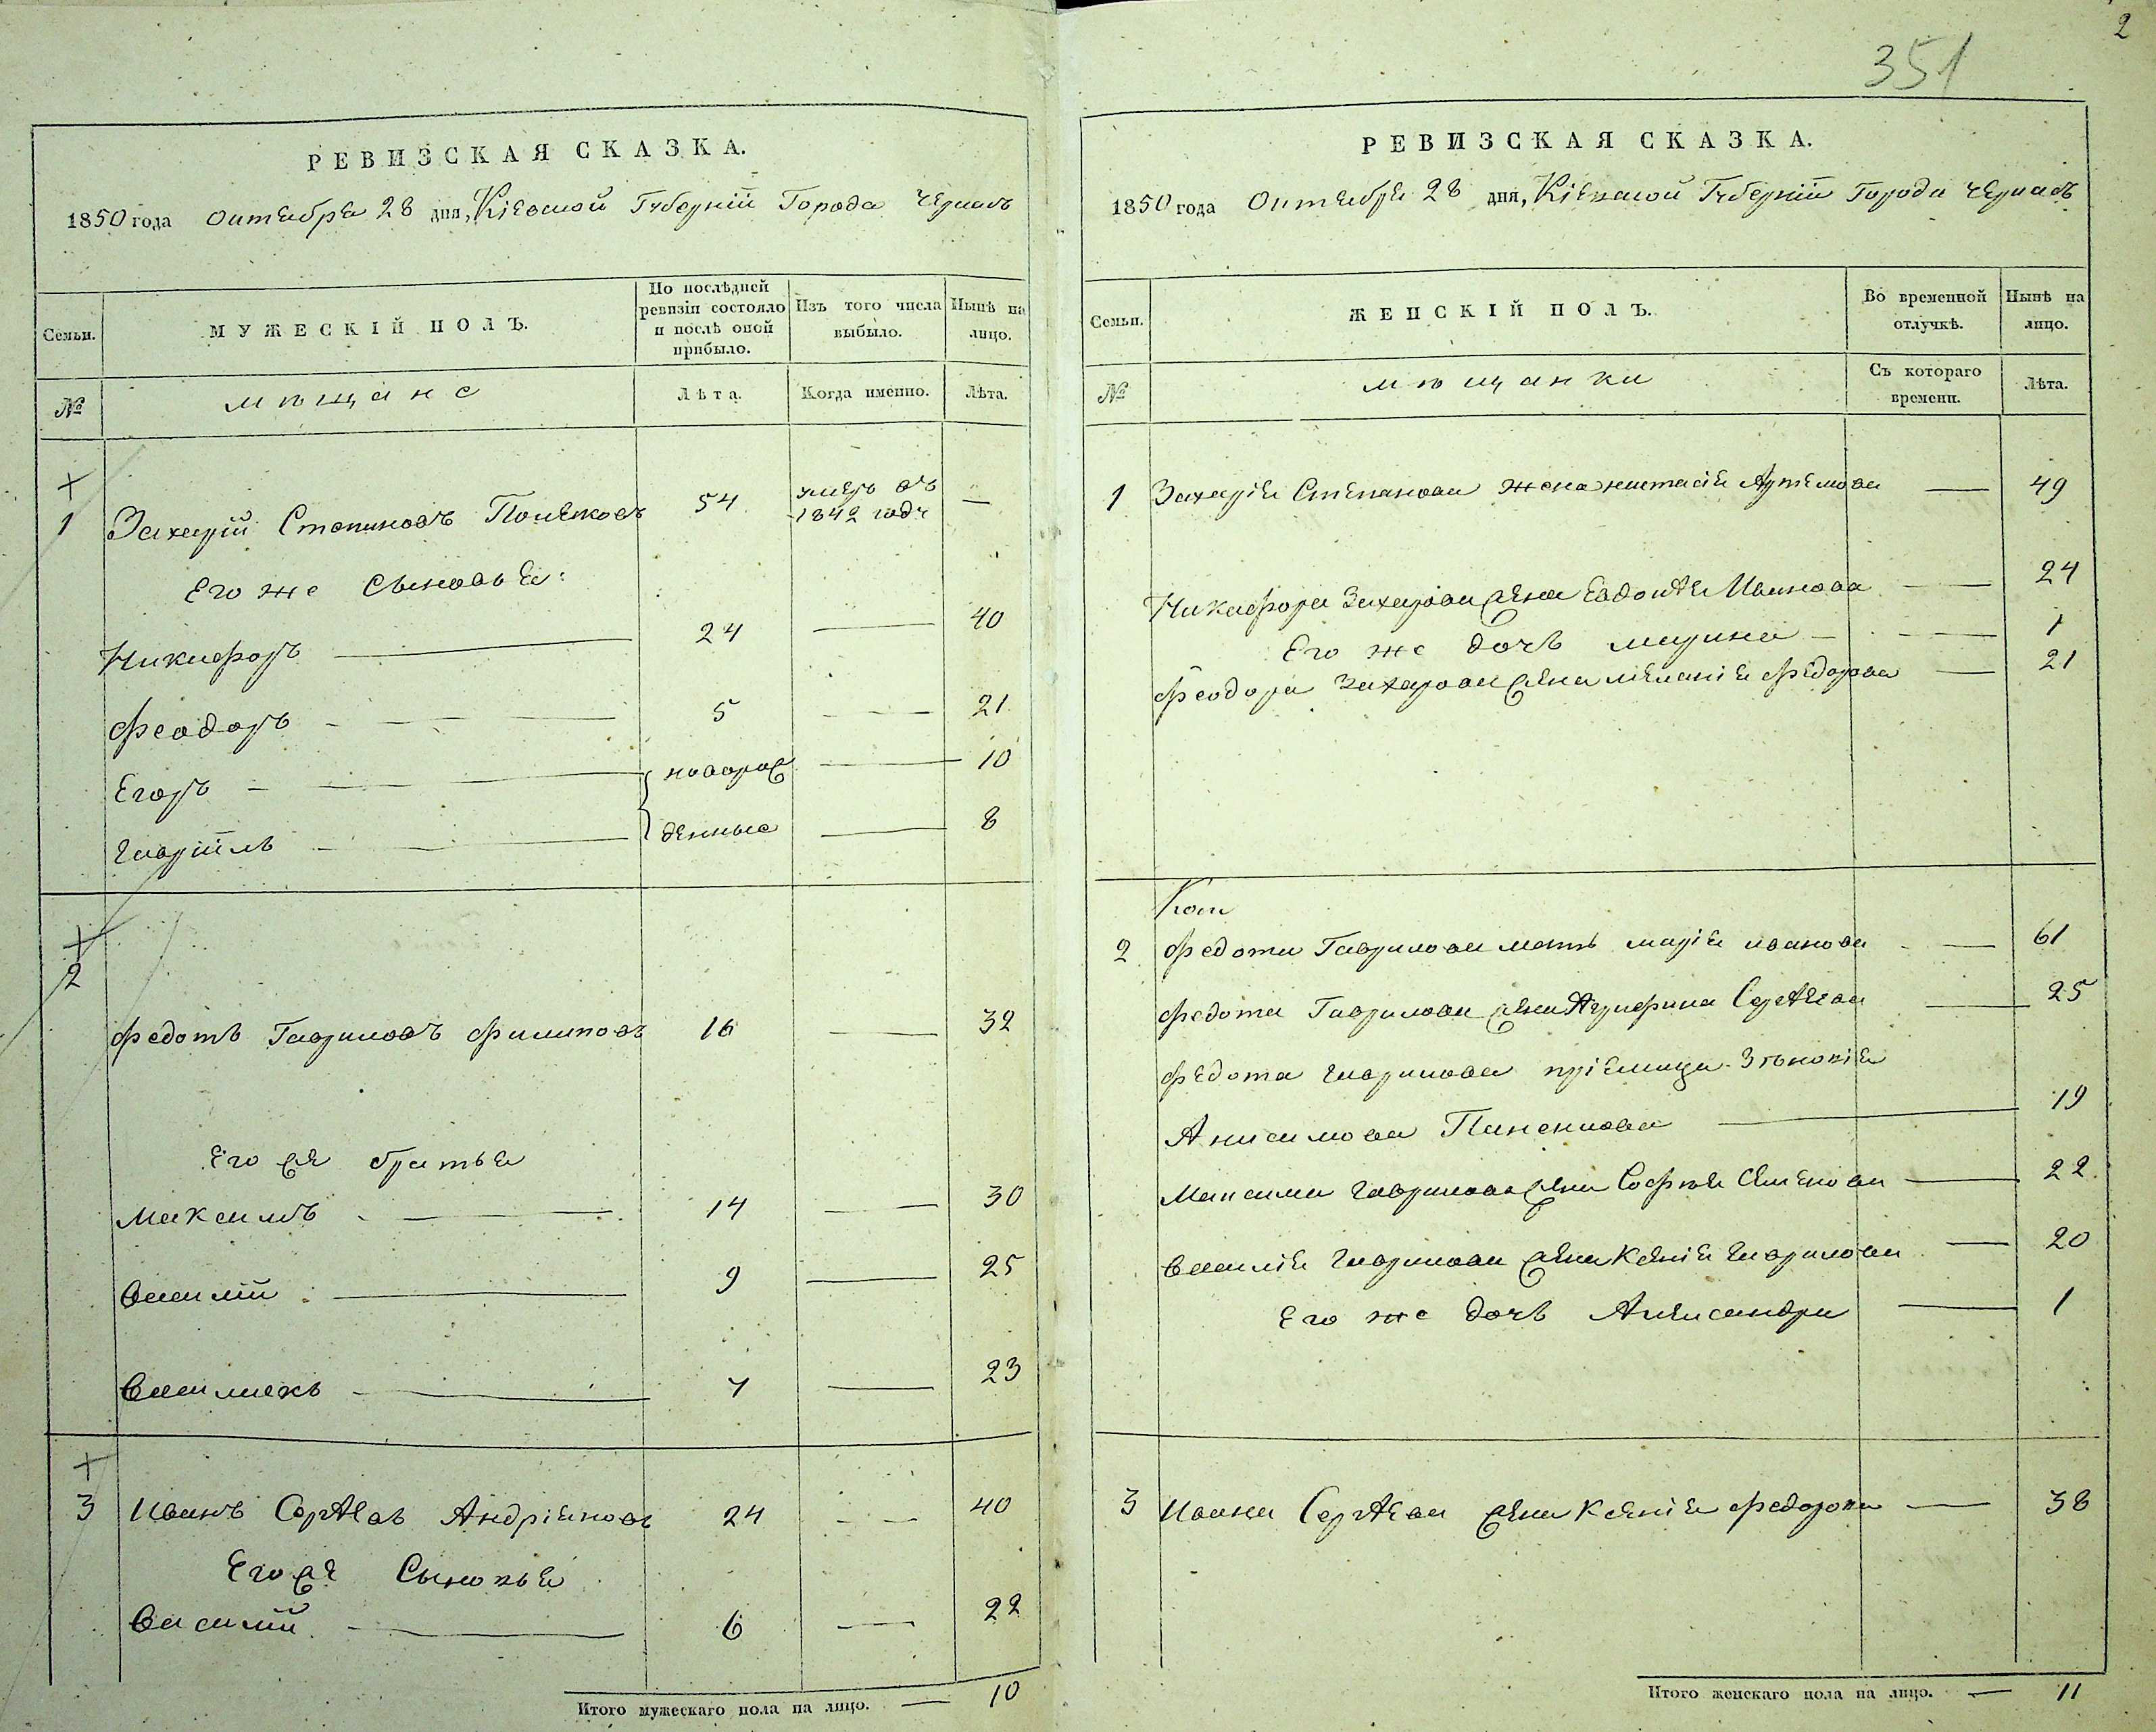 351
2
РЕВИЗСКАЯ СКАЗКА.
1850 года Октября 28 дня, Кіевской Губерніи Города Черкасъ
Семьи.
МУЖЕСКІЙ ПОЛЪ.
По послѣдней ревизіи состояло и послѣ оной прибыло.
Изъ того числа выбыло.
Нынѣ на лицо.
№
мѣщане
Лѣта.
Когда именно.
Лѣта.
1 Захарій Степановъ 54 умеръ въ 1842 году —
Его же Сыновья:
Никифоръ — 24 — 40
Феодоръ — 5 — 21
Егоръ — новорож — 10
Гавріилъ — денные — 8
2
Федотъ Гавриловъ Филиповъ 16 — 32
Его же братья
Максимъ — 14 — 30
Василій — 9 — 25
— 7 — 23
3 Иванъ Сергѣевъ 24 — 40
Его же Сыновья
Василій — 6 — 22
Итого мужескаго пола на лицо. — 10
РЕВИЗСКАЯ СКАЗКА.
1850 года Октября 28 дня, Кіевской Губерніи Города Черкасъ
Семьи.
ЖЕНСКІЙ ПОЛЪ.
Во временной отлучкѣ.
Нынѣ на лицо.
№
мѣщанки
Съ котораго времени.
Лѣта.
1 Захарія Степанова жена Артемова — 49
Никифора Захарова жена Иванова — 24
Его же дочь марина — 1
Феодора Захарова жена меланія Федорова — 21
2 Федота Гаврилова мать марія иванова — 61
Федота Гаврилова жена Агрифина Сергѣева — 25
Федота Гаврилова пріемица Зѣновія
Анисимова — 19
Максима Гаврилова жена Софія Семенова — 22
Василія Гаврилова жена Ксенія Гаврилова — 20
Его же дочь Александра — 1
3 Ивана Сергѣева жена Ксенія Федорова — 38
Итого женскаго пола на лицо. — 11